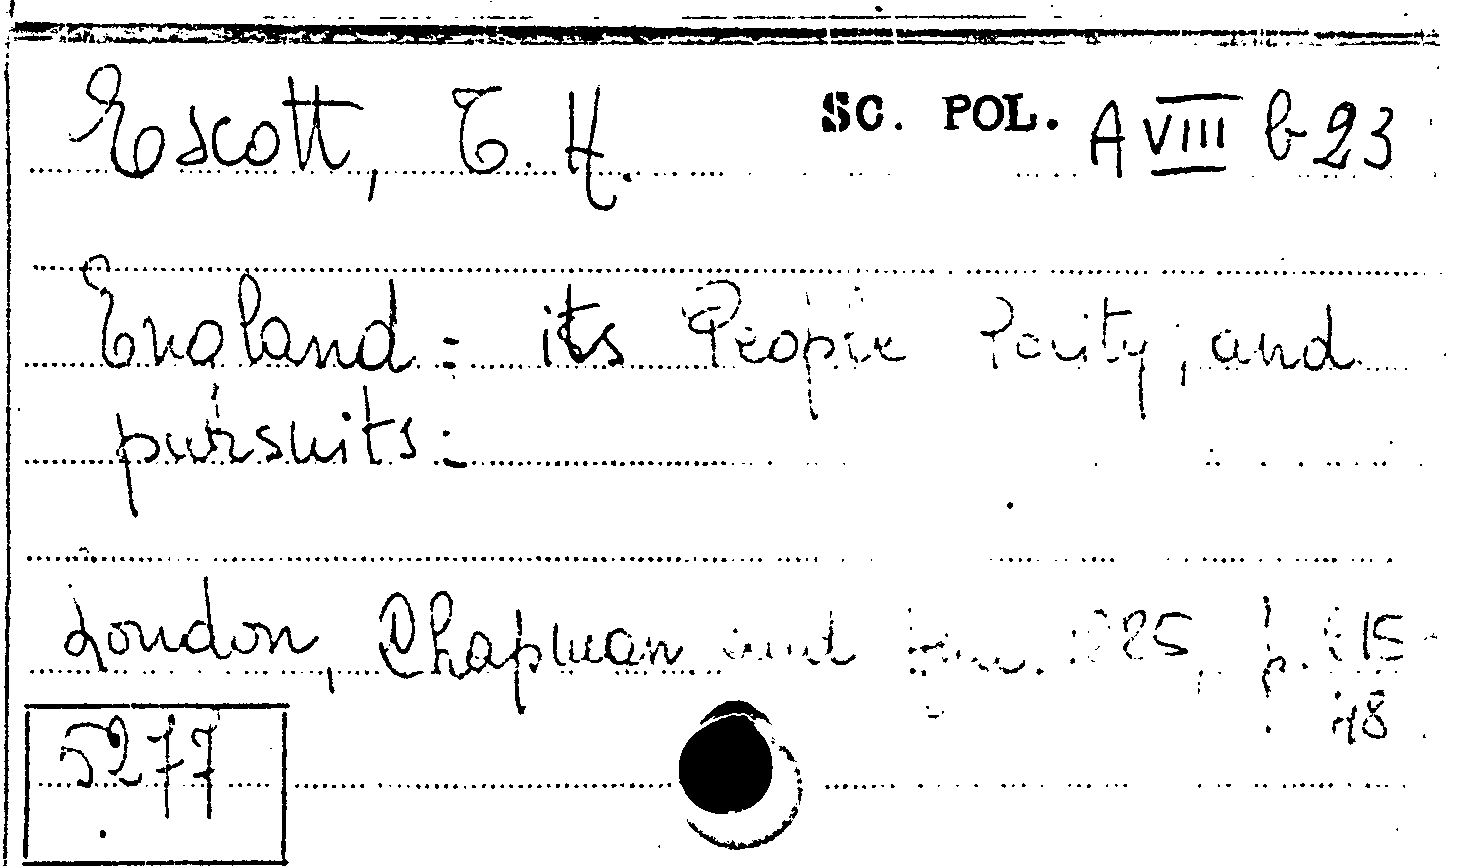 Escott, T. H. SC. POL. A VIII b 23
England: its People Polity, and
pursuits:
London, Chapman and 1885, p. 615
48
5277